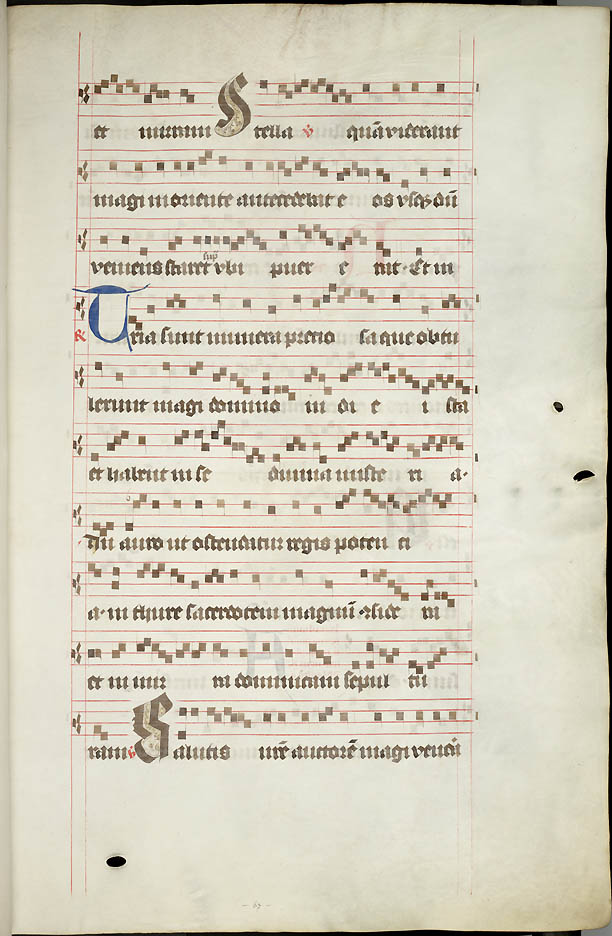 et mirram Stella ℣ quā viderant
magi in oriente antecedebat e os vsqʒ dū
veniens staret sup̄ vbi puer e rat · Et in
℟ Tria sunt munera precio sa que obtu
lerunt magi domino in di e i sta
et habent in se diuina miste ri a ·
In auro ut ostendatur regis poten ti
a · in thure sacerdotem magnū ⁊side ra
et in mir ra dominicam sepul tu
ram ℣ Salutis nrē auctorē magi venerā
- 67 -